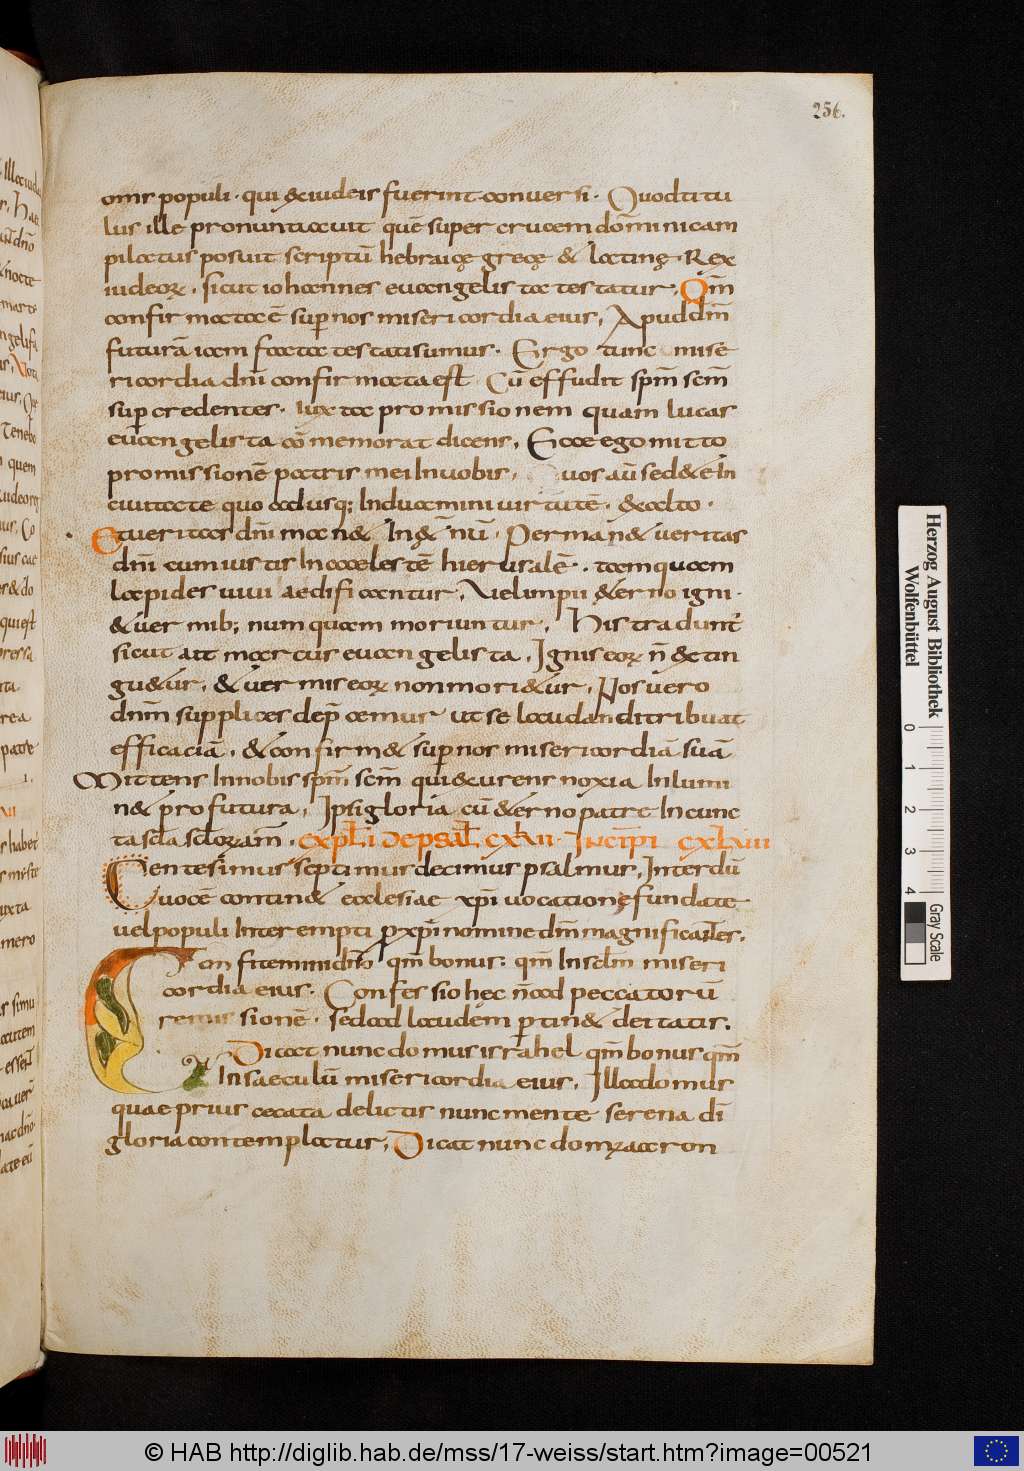 256.
om̄s populi · qui & iudeis fuerint conuersi · Quod titu
lus ille pronuntiauit quē super crucem dominicam
pilatus posuit scriptū hebraicę grecę & latinę · Rex
iudeoꝝ · sicut iohannes euangelista testatur · Qm̄
confirmata ē sup nos misericordia eius, Apud dm̄
futurā iam facta testati sumus · Ergo tunc mise
ricordia dn̄i confirmata est Cū effudit spm̄ scm̄
sup credentes · iuxta promissionem quam lucas
euangelista cōmemorat dicens, Ecce ego mitto
promissionē patris mei In uobis, uos aū sed&e In
ciuitate quo adusq; Induamini uirtutē · & alto ·
Et ueritas dn̄i man& In &n̄ū · Perman& ueritas
dn̄i cum iustis In caelestē hierusalē · tamquam
lapides uiui aedificantur, Vel impii &erno igni ·
& uermib; numquam moriuntur, His tradunt
sicut ait marcus euangelista, Ignis eoꝝ n̄ &tin
gu&ur, & uermis eoꝝ non mori&ur, Nos uero
dn̄m supplices dep̄camur ut se laudandi tribuat
efficaciā, & confirm& sup nos misericordiā suā
Mittens In nobis spm̄ scm̄ qui & urens noxia Inlumi
n& profutura, Ipsi gloria cū &erno patre In cunc
ta scła scłoram̄ · expł i de psał cxvii · Incip̄ cxlviii
Centesimus septimus decimus psalmus, Interdū
uocē contin& ecclesiae xp̄i uocationę fundate
uel populi Inter empti ꝑ xp̄i nomine dm̄ magnificantes,
Confitemini dn̄o qm̄ bonus : qm̄ In scłm miseri
cordia eius · Confessio hęc n̄ ad peccatorū
remissionē · sed ad laudem ꝑtin& deitatis.
Dicat nunc domus israhel qm̄ bonus qm̄
In saeculū misericordia eius, Illa domus
quae prius cecata delictis nunc mente serena dī
gloria contemplatur, Dicat nunc domꝰ aaron
Herzog August Bibliothek
Wolfenbüttel
0 1 2 3 4
Gray Scale
© HAB http://diglib.hab.de/mss/17-weiss/start.htm?image=00521